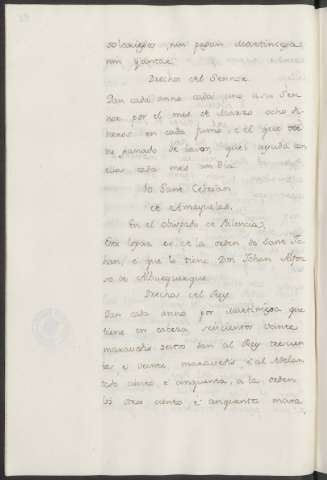 solariegos, nin pagan Martiniega
nin yantar.
Derechos del Sennor.
Dan cada anno cada uno a su Sen-
nor por el mes de Marzo ocho di-
neros en cada fumo, e el que
de ganado de lavor, quel ayuda con
ellos cada mes un dia.
So Sant Cebrian
de Amayuelas.
En el Obispado de Palencia.
Este logar es de la orden de Sant Jo-
han, e que la tiene Don Johan Alfon-
so de Alburquerque.
Derechos del Rey.
Dan cada anno por martiniega que
tiene en cabeza seiscientos veinte
maravedis destos dan al Rey trescien-
tos e veinte maravedis, e al Adelan-
tado ciento e cinquenta, a la orden
los otros ciento e cinquenta mara